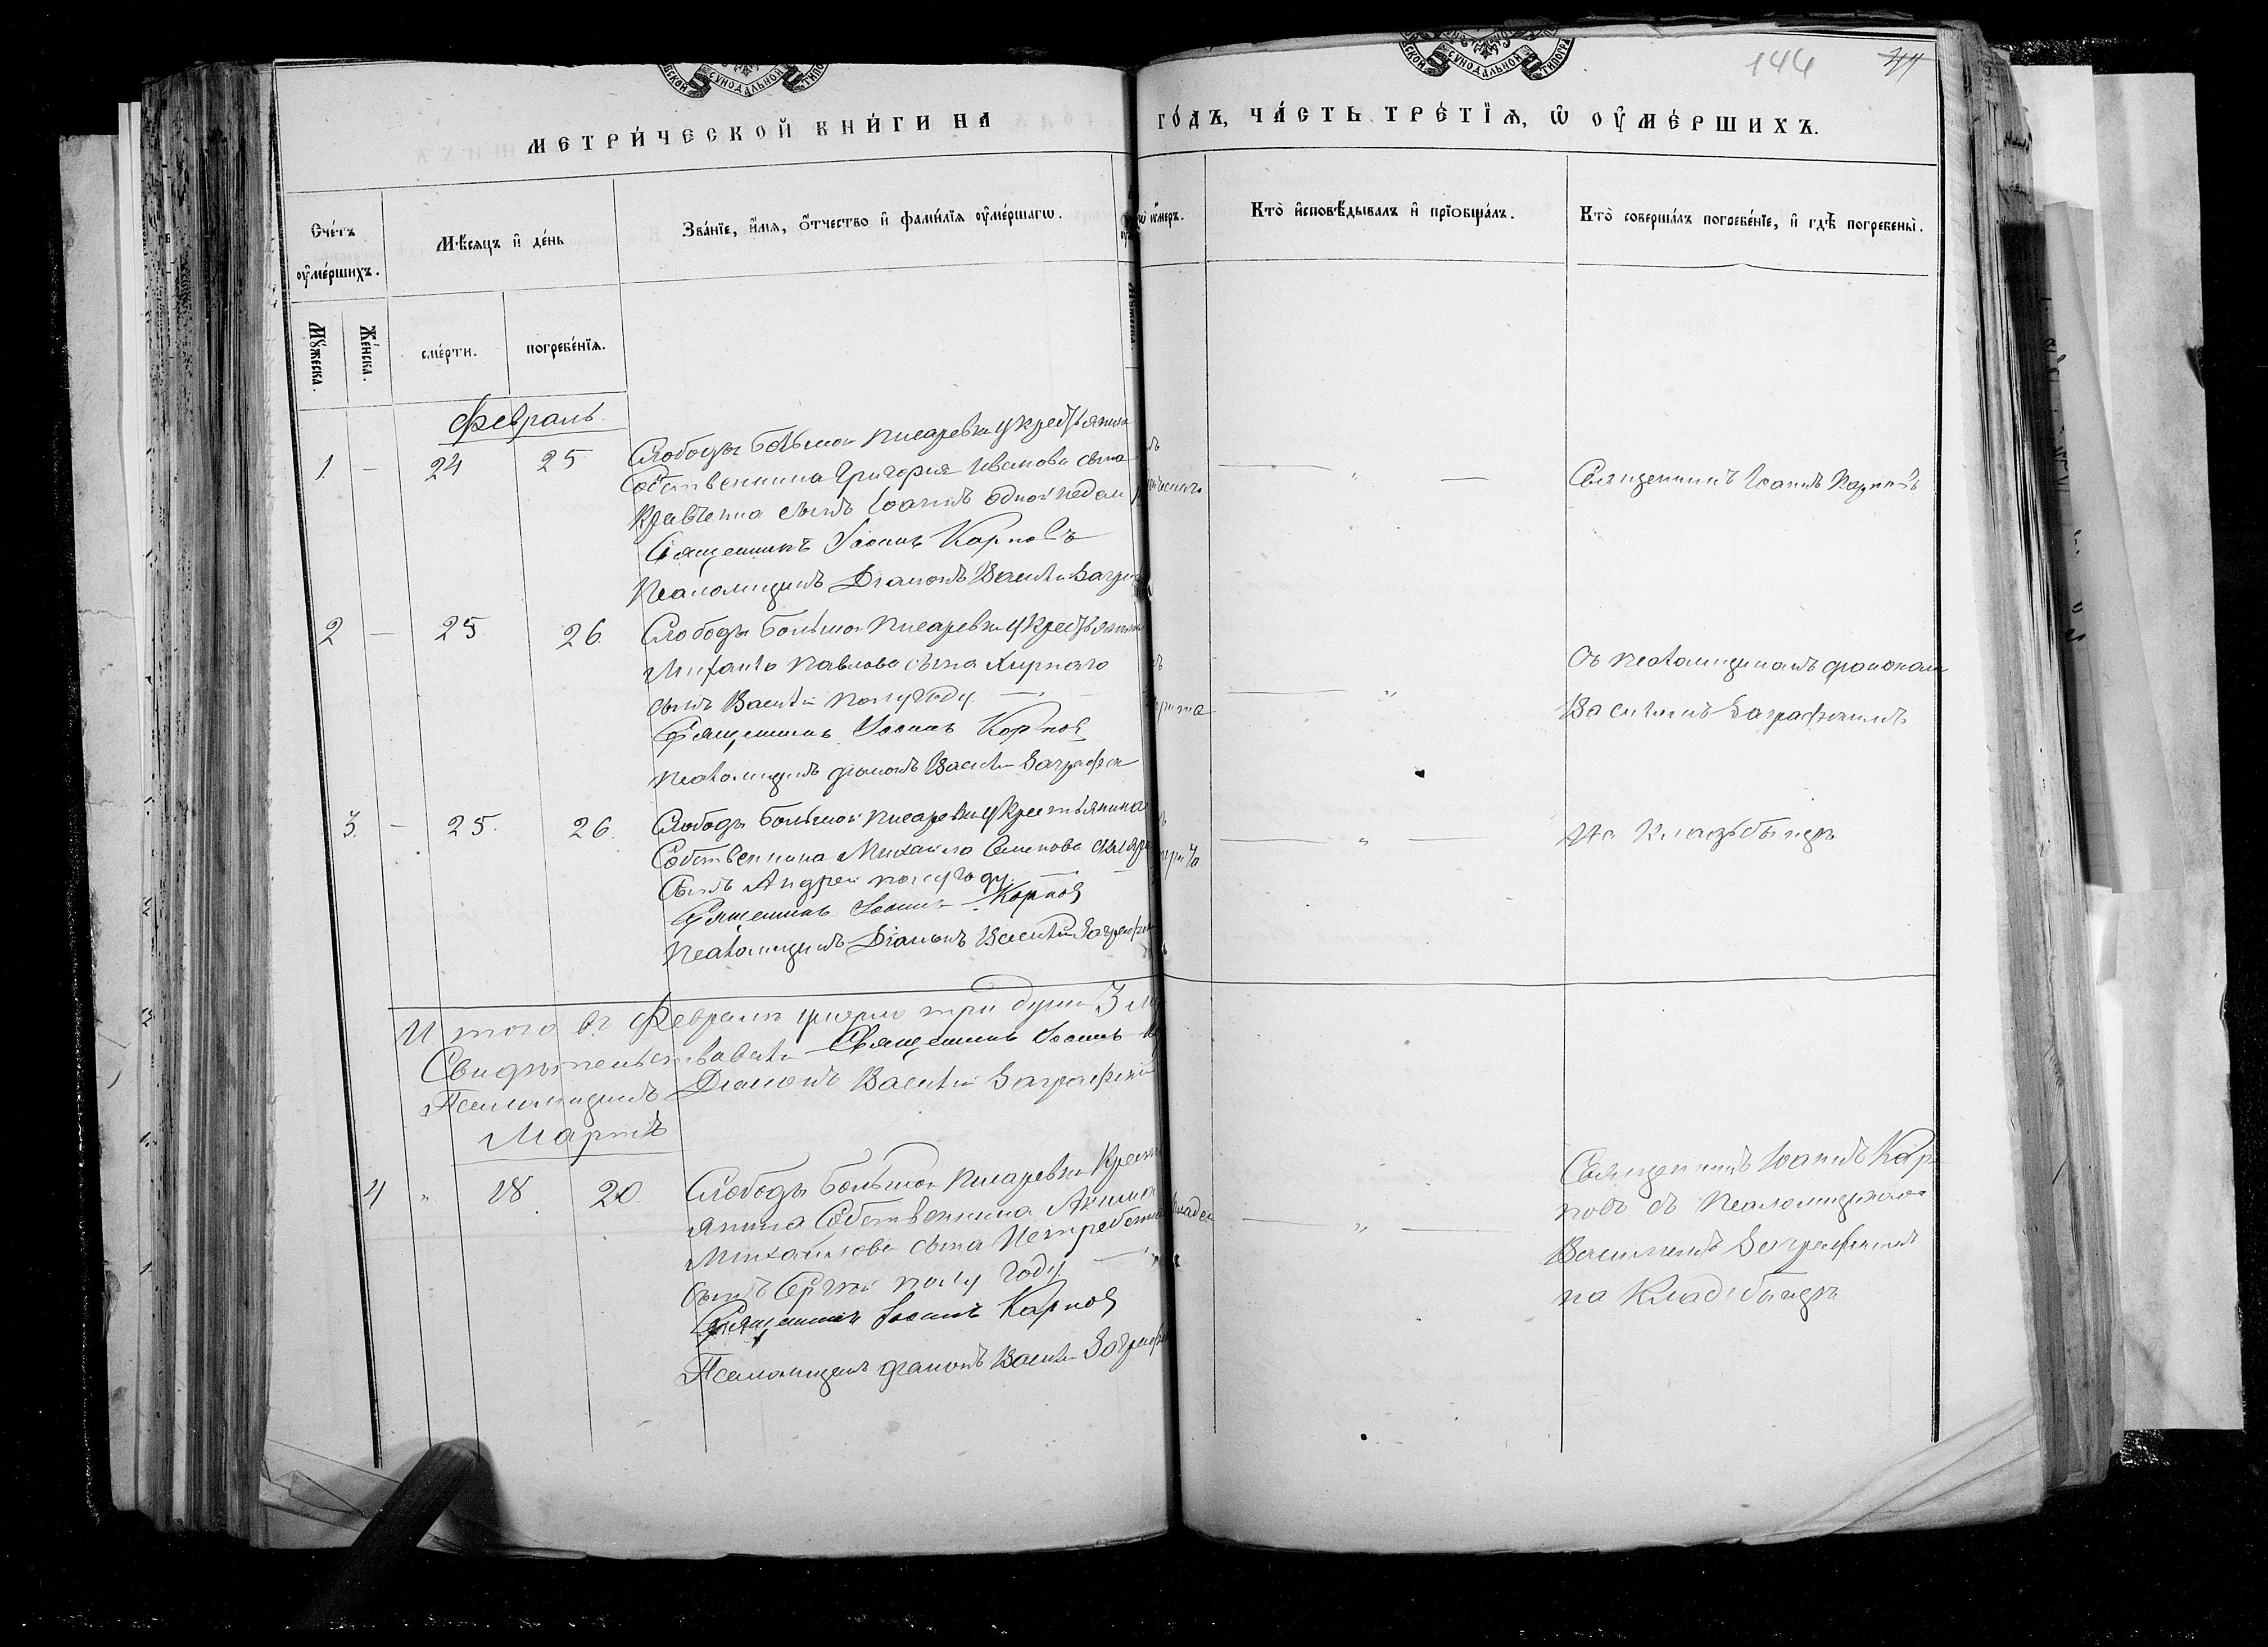 144
МЕТРИ́ЧЕСКОЙ КНИ́ГИ НА ГО́ДЪ, ЧА́СТЬ ТРЕ́ТЇѦ, Ѡ ОУ҆МЕ́РШИХЪ.
Сче́тъ оу҆ме́ршихъ.
Мѣ́сяцъ и҆ де́нь
Зва́нїе, и҆́мя, ѻ҆́тчество и҆ фами́лїя оу҆ме́ршагѡ.
Кто̀ и҆сповѣ́дывалъ и҆ прїобща́лъ.
Кто̀ соверша́лъ погребе́нїе, и҆ гдѣ̀ погребены̀.
Мꙋ́жеска.
Же́нска.
сме́рти.
погребе́нїя.
Февраль
1. — 24 25
Слободы Большой Писаревки у крестьянина
Собственника Григория Иванова сына
Кравченка сынъ Іоаннъ одной недели
Священникъ Іоаннъ Карповъ
Псаломщикъ Діаконъ Василій
Священникъ Іоаннъ Карповъ
2 — 25 26.
Слободы Большой Писаревки у крестьянина
Михаила Павлова сына Жирнаго
сынъ Василій полугоду
Священникъ Іоаннъ Карповъ
псаломщикъ діаконъ Василій
Съ псаломщикомъ діакономъ
Василіемъ
3. — 25. 26.
Слободы Большой Писаревки у Крестьянина
Собственника Михаила Семенова
сынъ Андрей полугоду.
Священникъ Іоаннъ Карповъ
Псаломщикъ Діаконъ Василій
На Кладбищѣ
Итого въ Февралѣ умерло три души 3 м
Свидѣтельствовали Священникъ Іоаннъ
Псаломщикъ Діаконъ Василій
Мартъ
4 " 18 20.
Слободы Большой Писаревки Крест
янина Собственника
Михайлова сына
сынъ Сергій полу году
Священникъ Іоаннъ Карповъ
Псаломщикъ діаконъ Василій
Священникъ Іоаннъ Кар
повъ съ Псаломщикомъ
Василіемъ
на Кладбищѣ